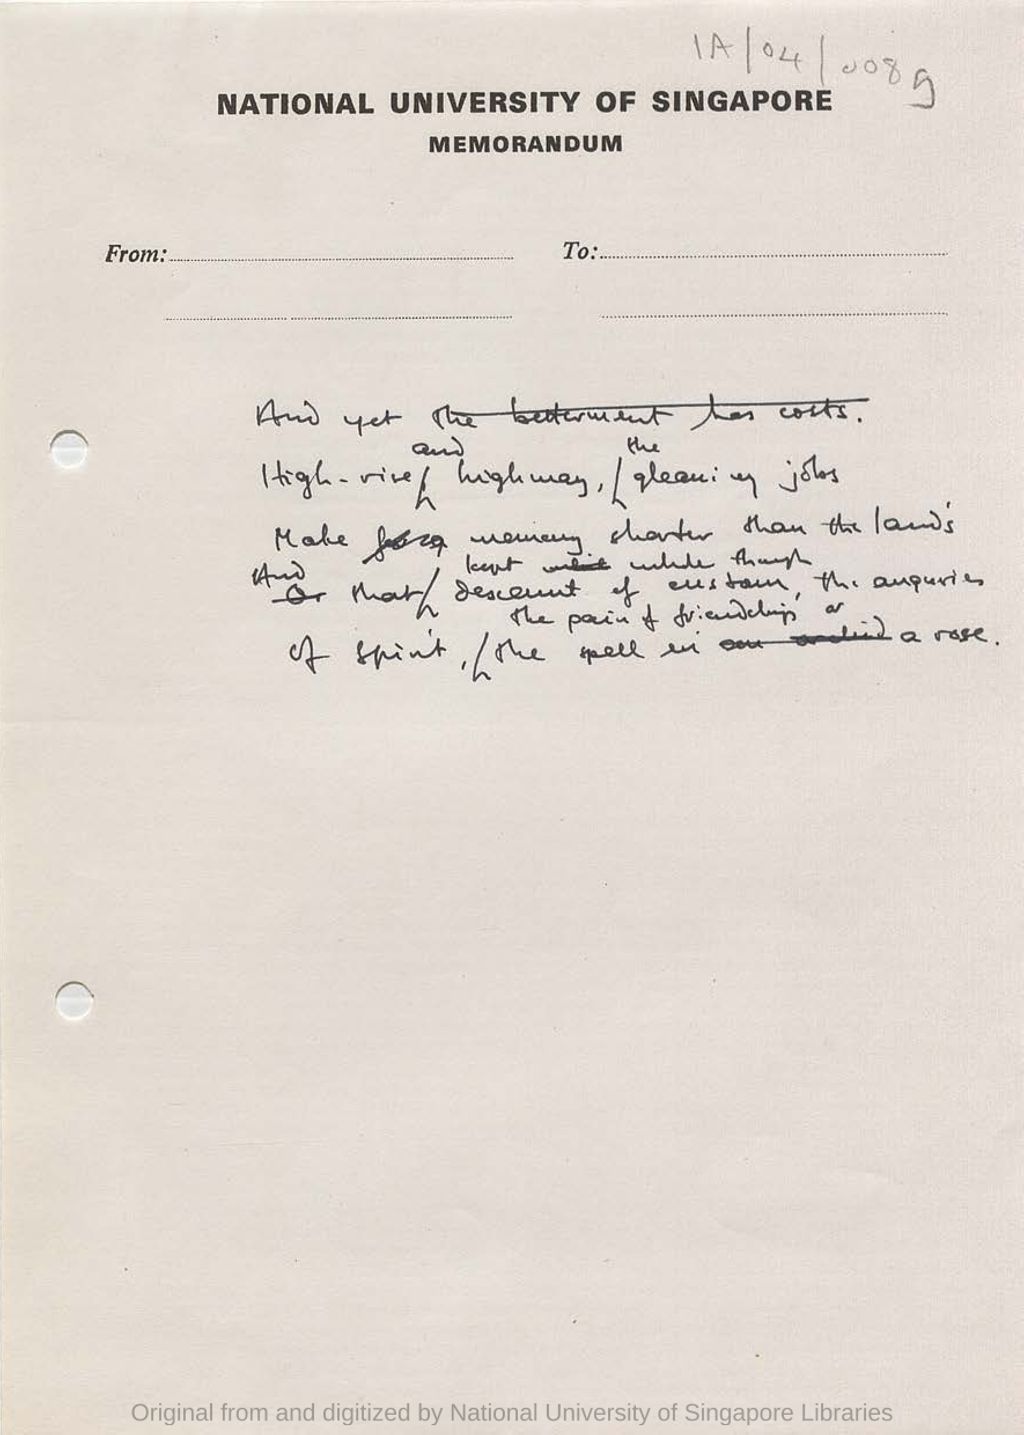 1A/04/0089
NATIONAL UNIVERSITY OF SINGAPORE
MEMORANDUM
From: To:
And yet the betterment has costs.
and the
High-rise highway, gleaming jobs
Make memory shorter than the land's
And kept while though
Or that descent of custom, the anguries
the pain of friendship or
Of spirit, the spell in an orchid a rose.
Original from and digitized by National University of Singapore Libraries